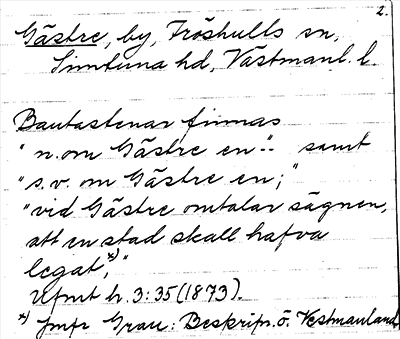 2.
Gästre, by, Fröshults sn,
Simtuna hd, Västmanl. l.
Bautastenar finnas
"n. om Gästre en".. samt
"s.v. om Gästre en;"
"vid Gästre omtalar sägnen,
att en stad skall hafva
legat,*)"
Ufmt h. 3:35 (1873).
*) Jmfr Grau: Beskrifn. ö. Vestmanland